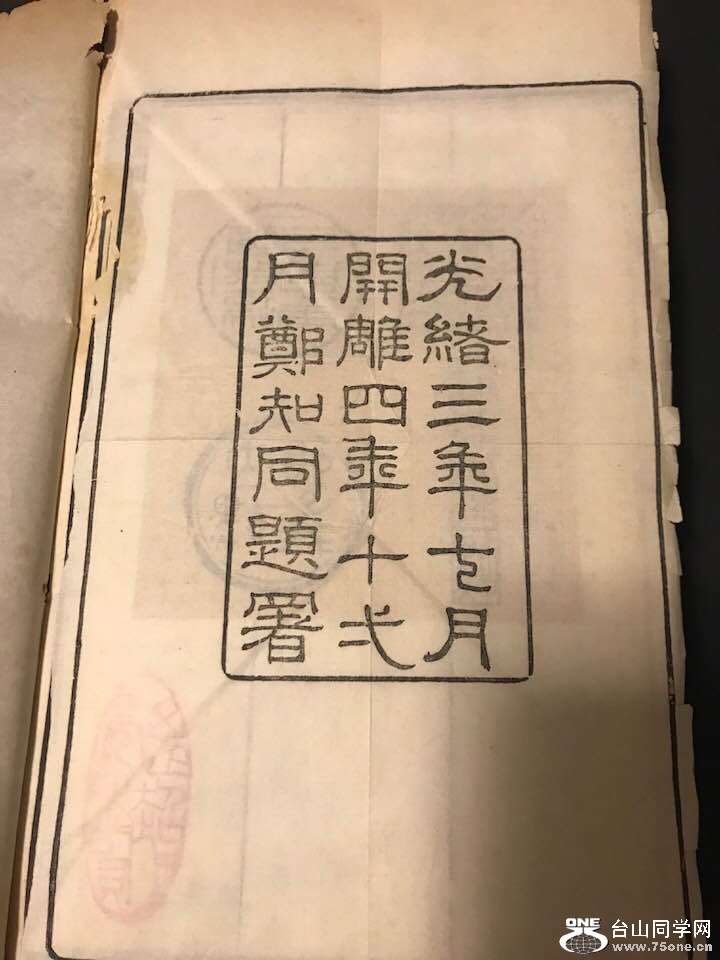 光緒三年七月
開雕四年十弍
月鄭知同題署
ONE
台山同学网
www.75one.com